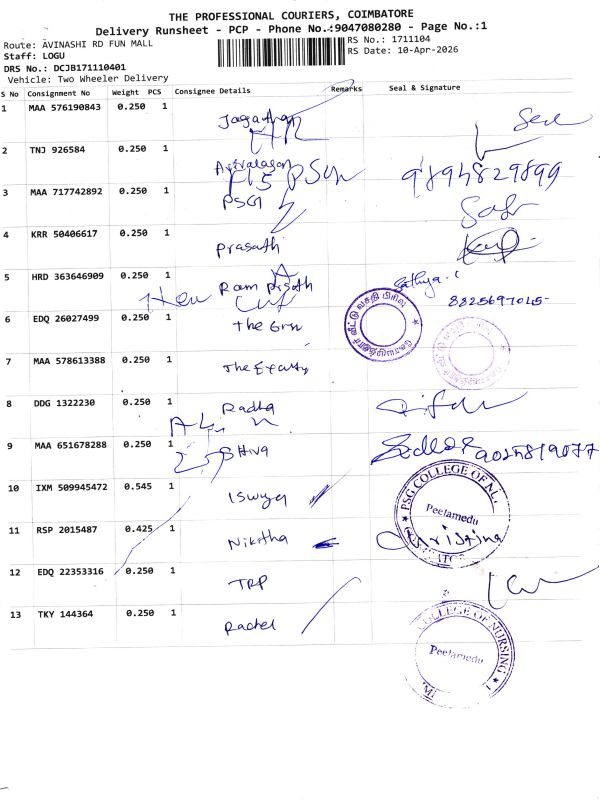 THE PROFESSIONAL COURIERS, COIMBATORE
Delivery Runsheet - PCP - Phone No.:9047080280 - Page No.:1
Route: AVINASHI RD FUN MALL
RS No.: 1711104
Staff: LOGU
RS Date: 10-Apr-2026
DRS No.: DCJB171110401
Vehicle: Two Wheeler Delivery
S No Consignment No Weight PCS Consignee Details Remarks Seal & Signature
1 MAA 576190843 0.250 1 Jagathan
2 TNJ 926584 0.250 1 Arivalagan 9894829899
3 MAA 717742892 0.250 1 PSG
4 KRR 50406617 0.250 1 Prasath
5 HRD 363646909 0.250 1 Ram Prsath Sathya. 8825697045
6 EDQ 26027499 0.250 1 The Grn
7 MAA 578613388 0.250 1 The
8 DDG 1322230 0.250 1 Radha
9 MAA 651678288 0.250 1 Shiva 9025819077
10 IXM 509945472 0.545 1 Iswya PSG COLLEGE OF Peelamedu
11 RSP 2015487 0.425 1 Nikitha Christina
12 EDQ 22353316 0.250 1 TRP
13 TKY 144364 0.250 1 Rachel
COLLEGE OF NURSING
Peelamedu